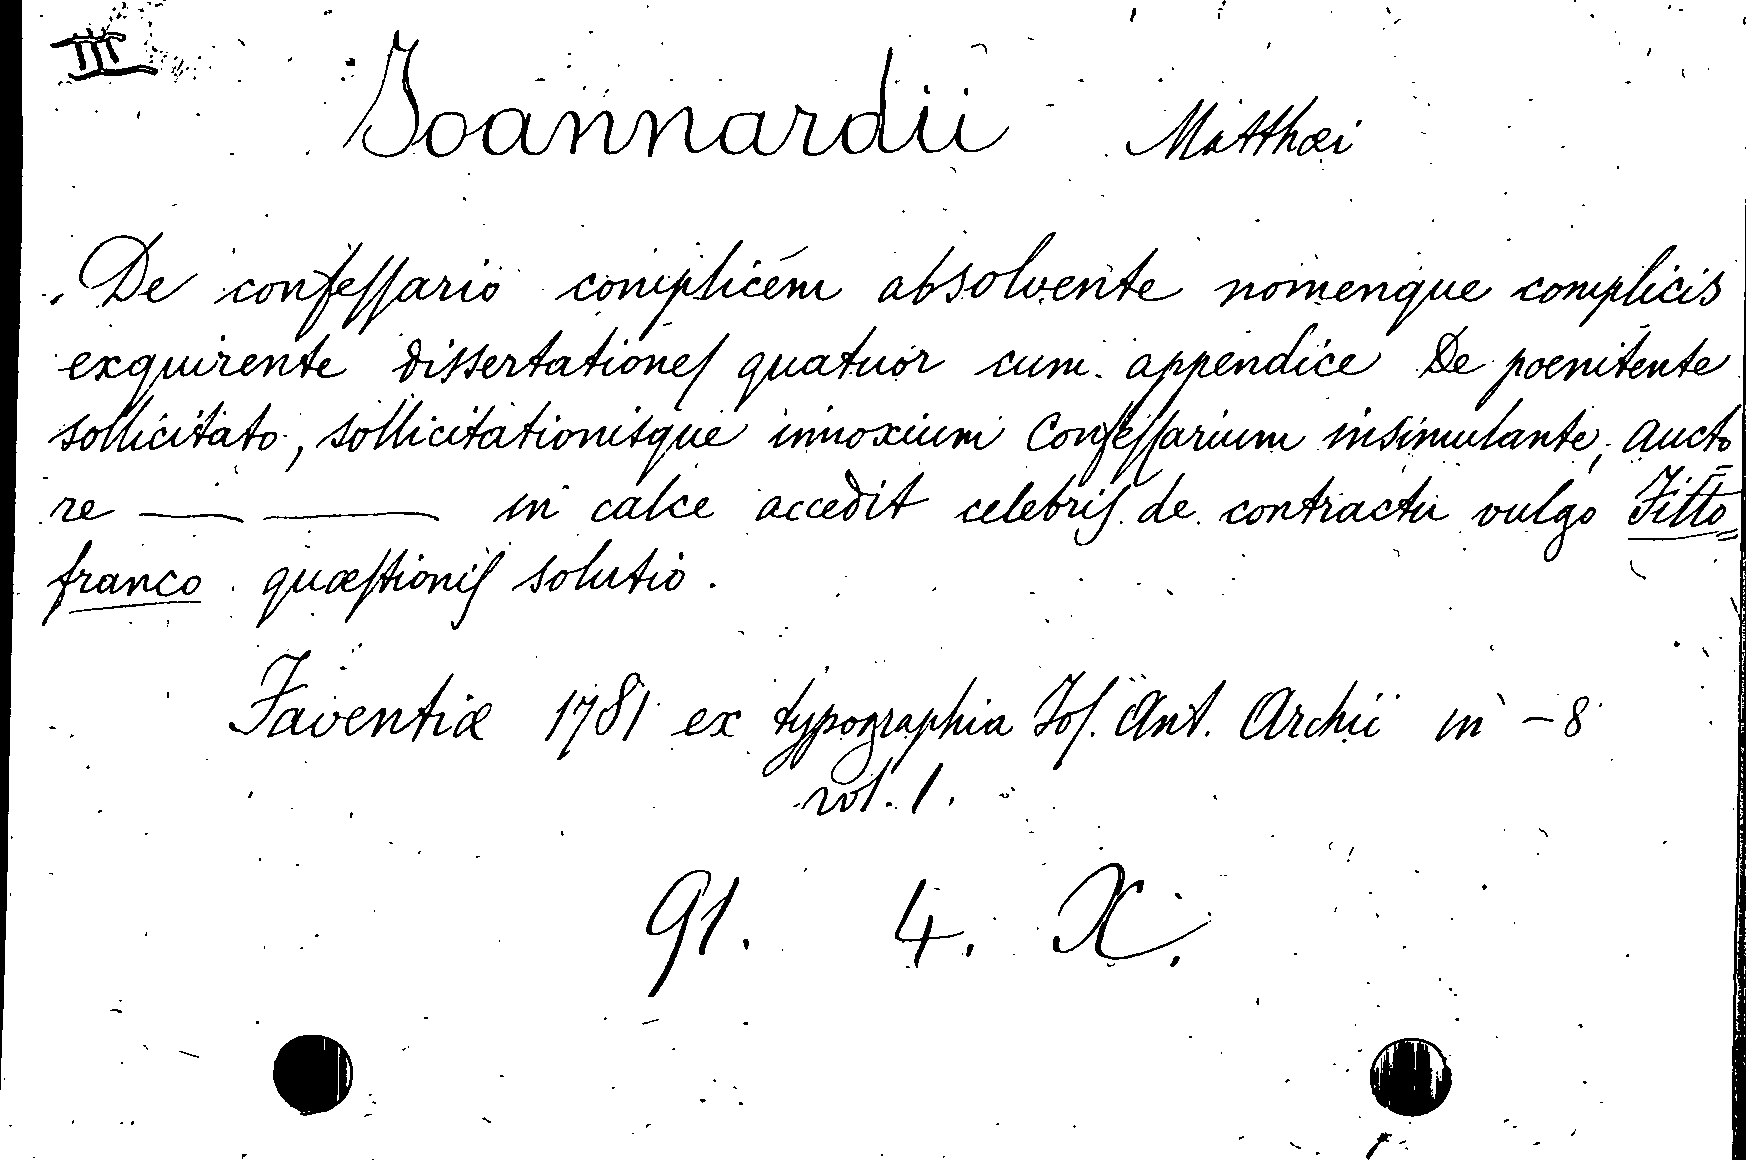 III
Joannardii Matthæi
De confessario complicem absolvente nomenque complicis
exquirente dissertationes quatuor cum appendice De poenitente
sollicitato, sollicitationisque innoxium Confessarium insimulante, aucto
re — — in calce accedit celebris de contractu vulgo Fitto=
franco quæstionis solutio.
Faventiæ 1781 ex typographia Jos. Ant. Archii in - 8
vol. 1.
91. 4. X.